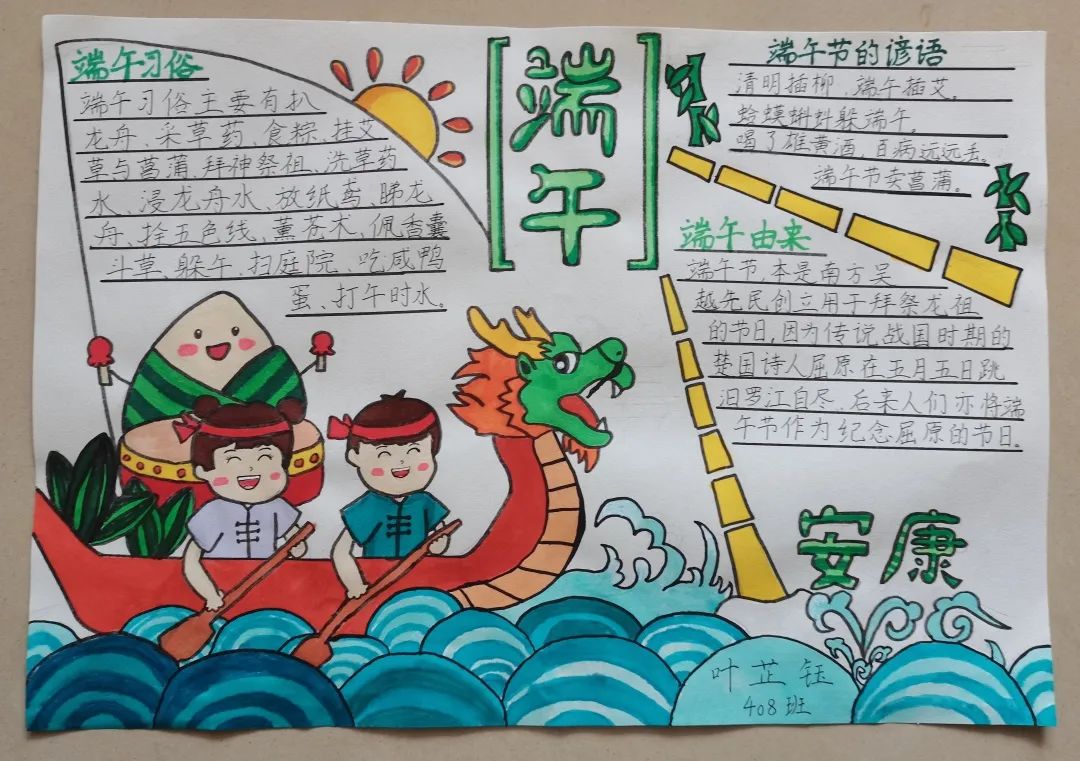 端午习俗
端午习俗主要有扒
龙舟、采草药、食粽、挂艾
草与菖蒲、拜神祭祖、洗草药
水、浸龙舟水、放纸鸢、睇龙
舟、拴五色线、薰苍术、佩香囊
斗草、躲午、扫庭院、吃咸鸭
蛋、打午时水。
端午
端午节的谚语
清明插柳、端午插艾。
蛤蟆蝌蚪躲端午。
喝了雄黄酒,百病远远丢。
端午节卖菖蒲。
端午由来
端午节,本是南方吴
越先民创立用于拜祭龙祖
的节日,因为传说战国时期的
楚国诗人屈原在五月五日跳
汨罗江自尽,后来人们亦将端
午节作为纪念屈原的节日。
安康
叶芷钰
408班